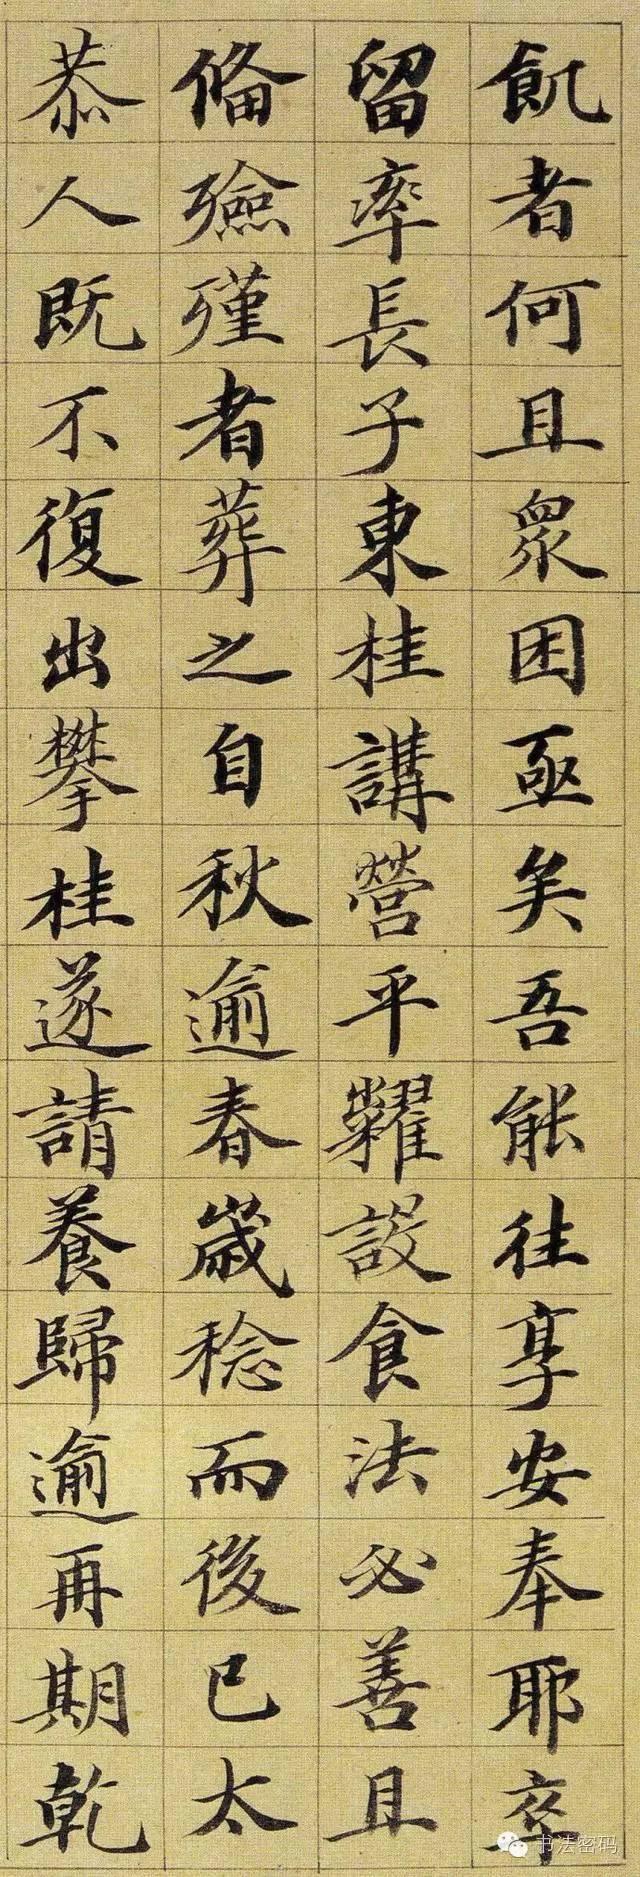 飢者何且眾困亟矣吾能往享安奉耶卒
留率長子東桂講營平糶設食法必善且
俻殮殣者葬之自秋逾春歲稔而後已太
恭人既不復出攀桂遂請養歸逾再期乾
书法密码